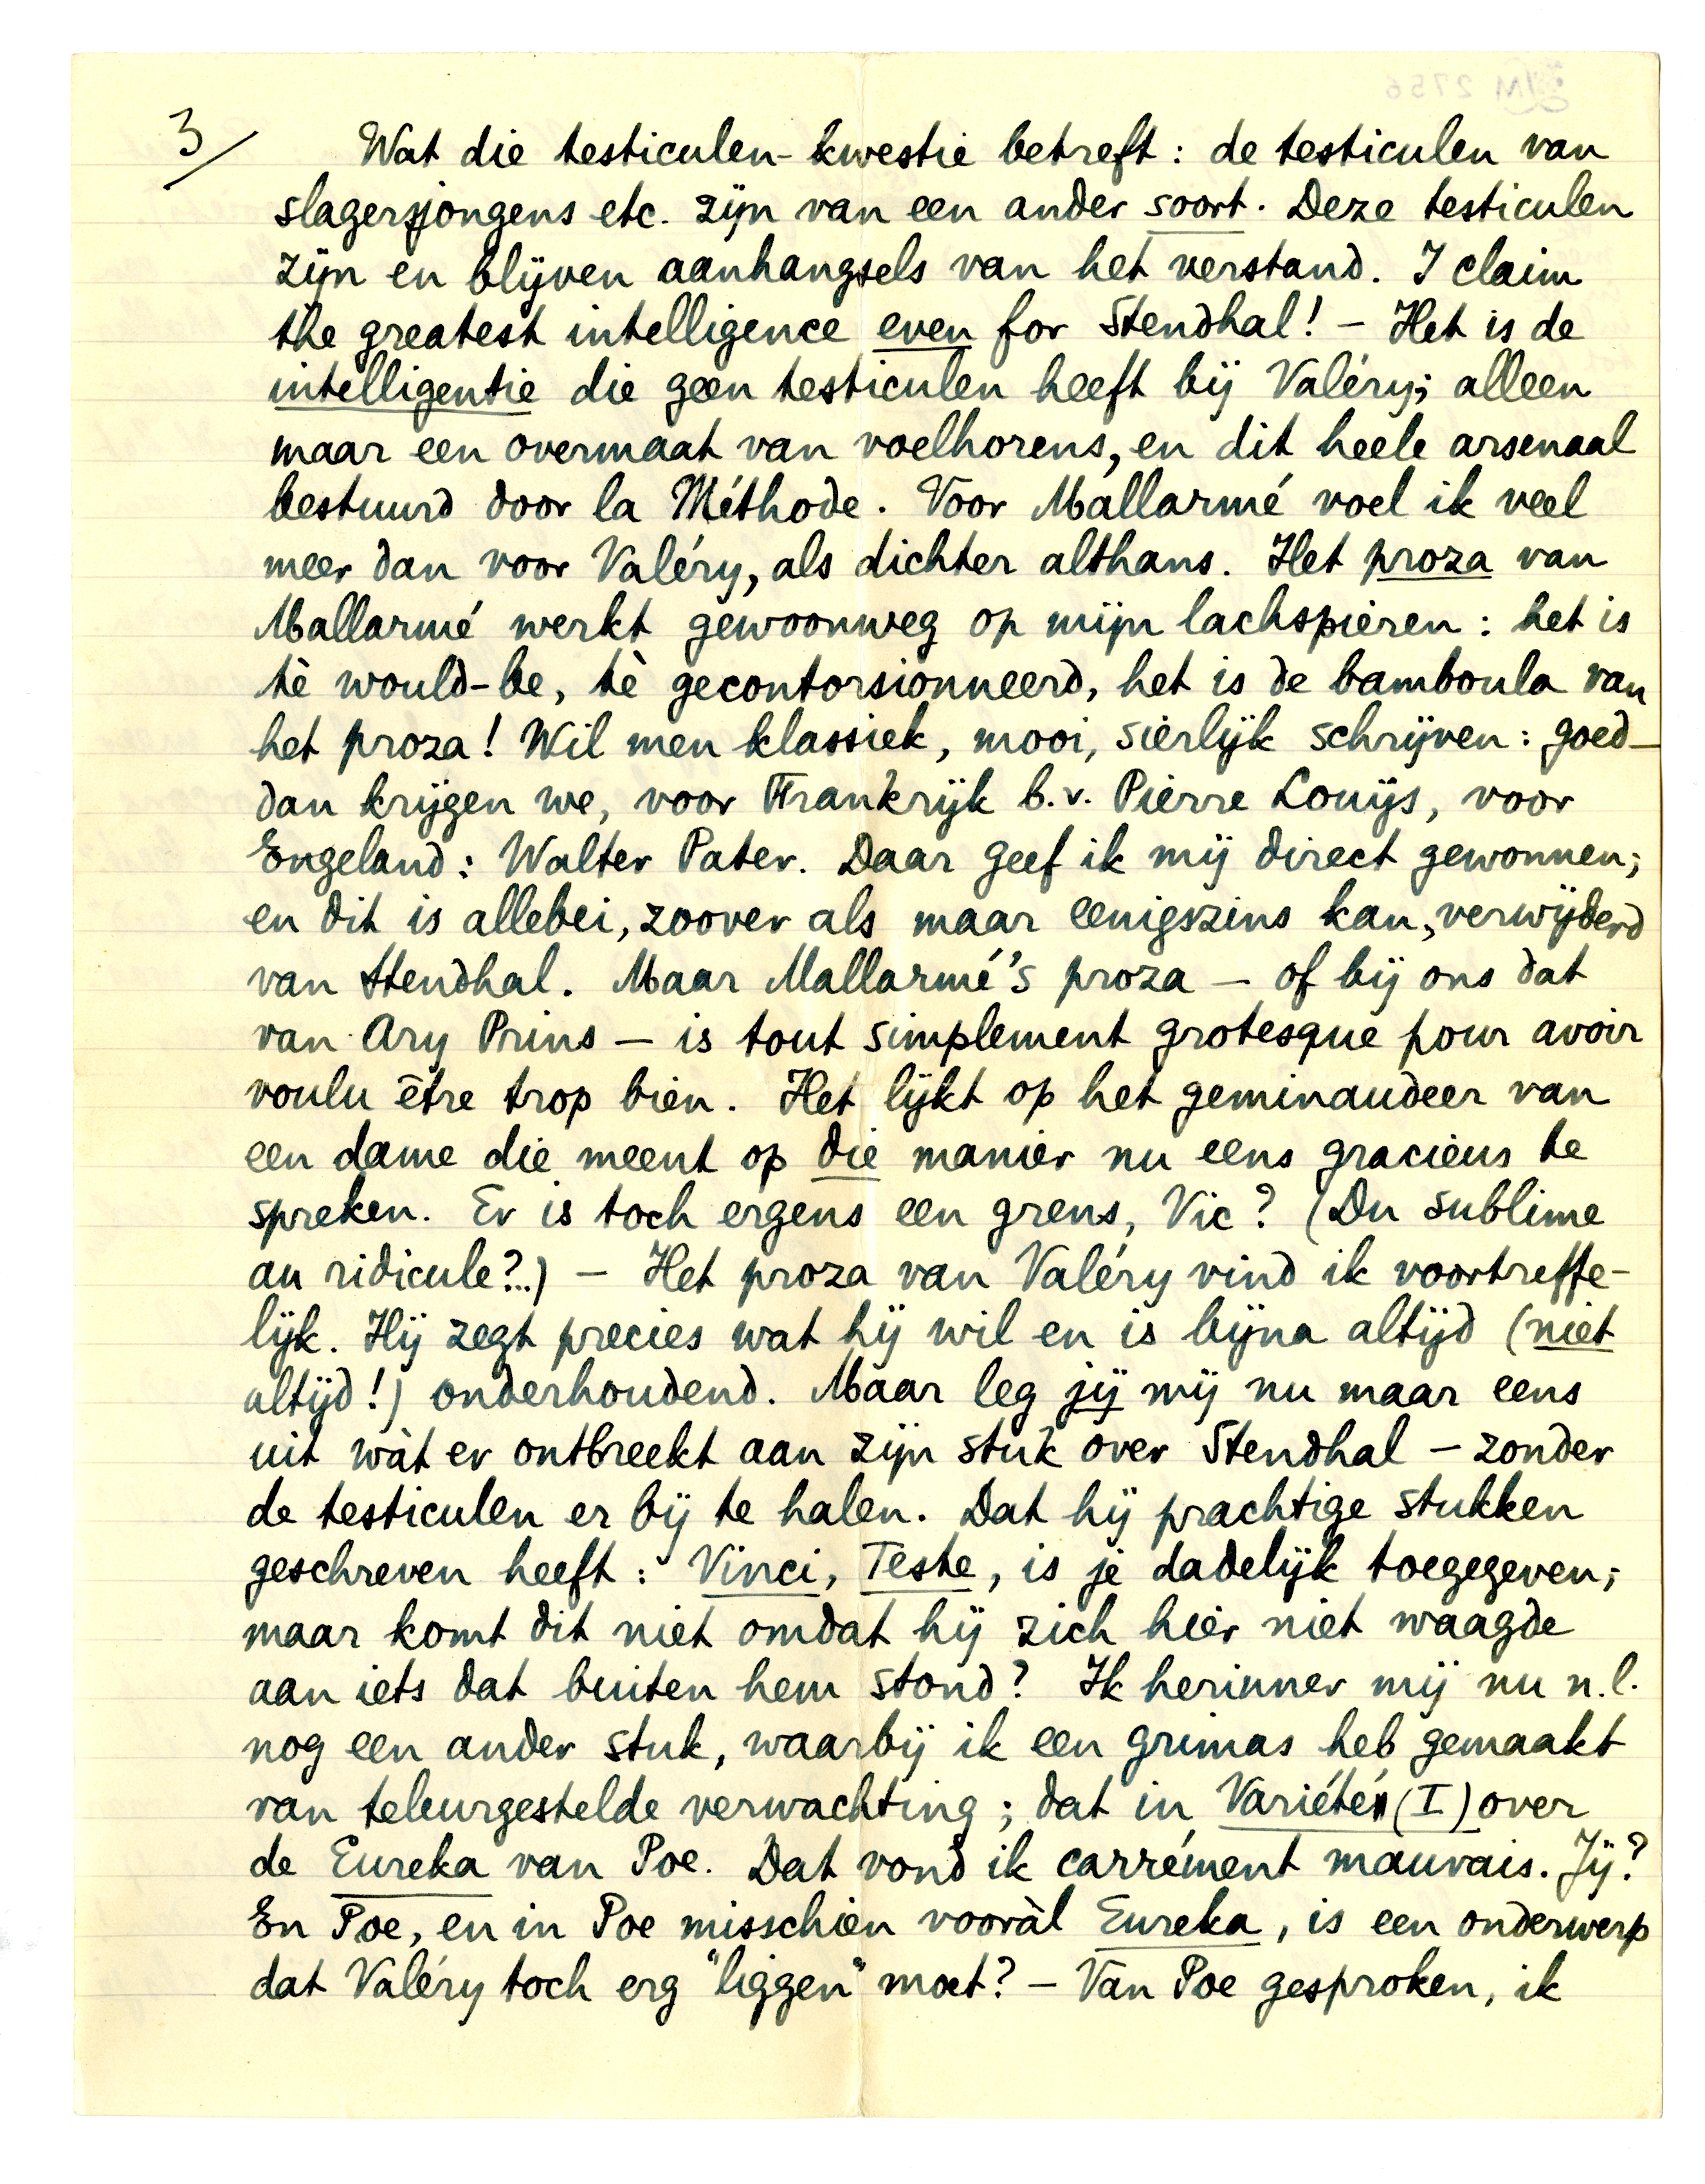 3/
Wat die testiculen-kwestie betreft: de testiculen van
slagersjongens etc. zijn van een ander soort. Deze testiculen
zijn en blijven aanhangsels van het verstand. I claim
the greatest intelligence even for Stendhal! – Het is de
intelligentie die geen testiculen heeft bij Valéry; alleen
maar een overmaat van voelhorens, en dit heele arsenaal
bestuurd door la Méthode. Voor Mallarmé voel ik veel
meer dan voor Valéry, als dichter althans. Het proza van
Mallarmé werkt gewoonweg op mijn lachspieren: het is
tè would-be, tè gecontorsionneerd, het is de bamboula van
het proza! Wil men klassiek, mooi, sierlijk schrijven: goed –
dan krijgen we, voor Frankrijk b.v. Pierre Louÿs, voor
Engeland: Walter Pater. Daar geef ik mij direct gewonnen;
en dit is allebei, zoover als maar eenigszins kan, verwijderd
van Stendhal. Maar Mallarmé's proza – of bij ons dat
van Ary Prins – is tout simplement grotesque pour avoir
voulu être trop bien. Het lijkt op het geminaudeer van
een dame die meent op die manier nu eens gracieus te
spreken. Er is toch ergens een grens, Vic? (Du sublime
au ridicule?..) – Het proza van Valéry vind ik voortreffe-
lijk. Hij zegt precies wat hij wil en is bijna altijd (niet
altijd!) onderhoudend. Maar leg jij mij nu maar eens
uit wàt er ontbreekt aan zijn stuk over Stendhal – zonder
de testiculen er bij te halen. Dat hij prachtige stukken
geschreven heeft: Vinci, Teste, is je dadelijk toegegeven;
maar komt dit niet omdat hij zich hier niet waagde
aan iets dat buiten hem stond? Ik herinner mij nu n.l.
nog een ander stuk, waarbij ik een grimas heb gemaakt
van teleurgestelde verwachting; dat in Variété (I) over
de Eureka van Poe. Dat vond ik carrément mauvais. Jij?
En Poe, en in Poe misschien vooràl Eureka, is een onderwerp
dat Valéry toch erg "liggen" moet? – Van Poe gesproken, ik
LM 2756